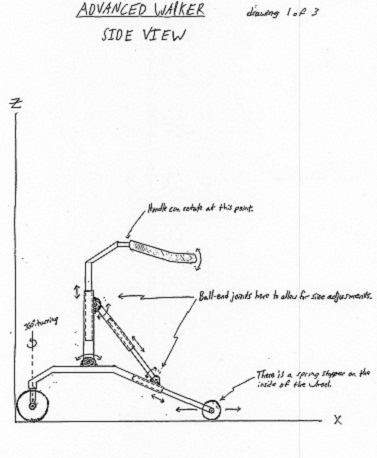 ADVANCED WALKER
drawing 1 of 3
SIDE VIEW
Z
Handle can rotate at this point.
Ball-end joints here to allow for side adjustments.
360° turning
There is a spring stopper on the
inside of the wheel.
X